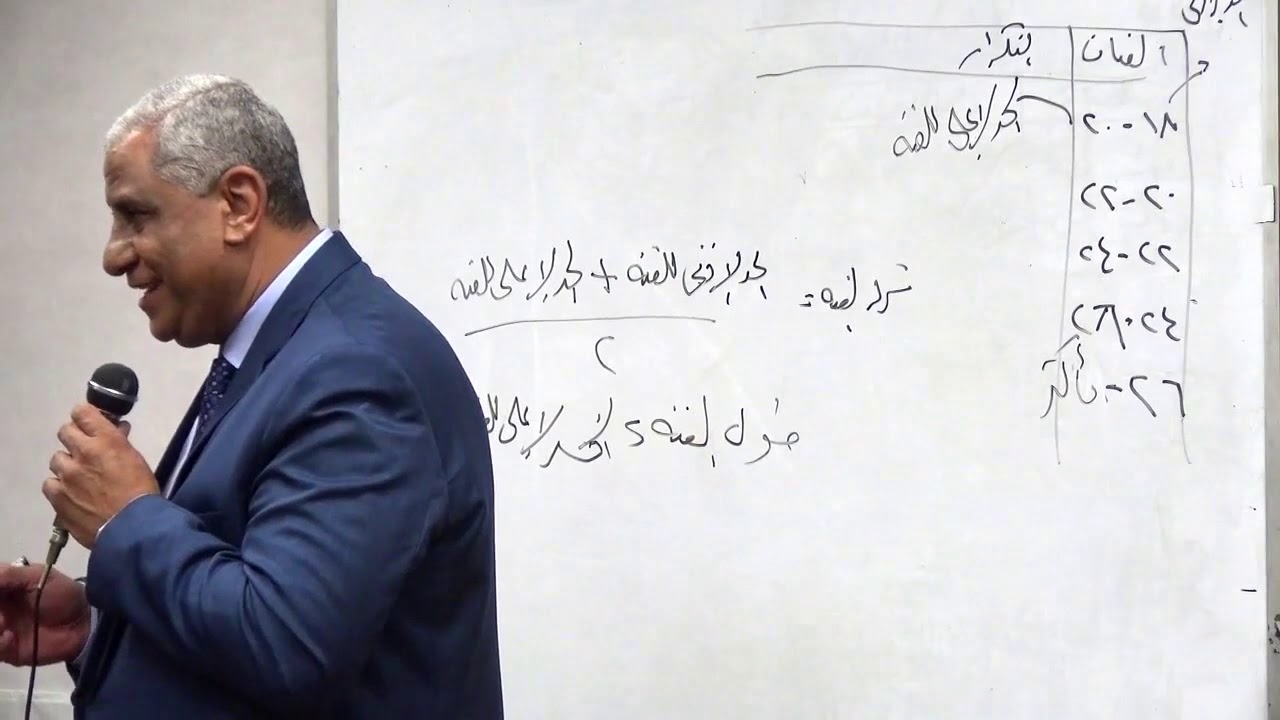 الفئات التكرار
١٨-٢٠ الحد الأعلى للفئة
٢٠-٢٢
٢٢-٢٤
٢٤-٢٦
٢٦- فأكثر
الحد الأدنى للفئة + الحد الأعلى للفئة
= الفئة
٢
طول الفئة = الحد الأعلى